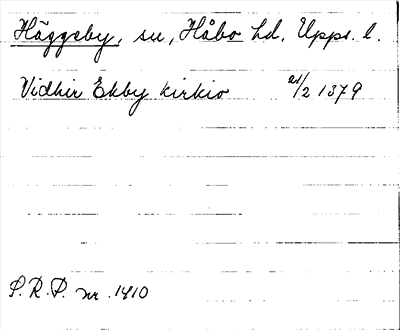 Häggeby, sn, Håbo hd, Upps. l.
Vidhir Ekby kirkio 21/2 1379
S. R. P. nr. 1410